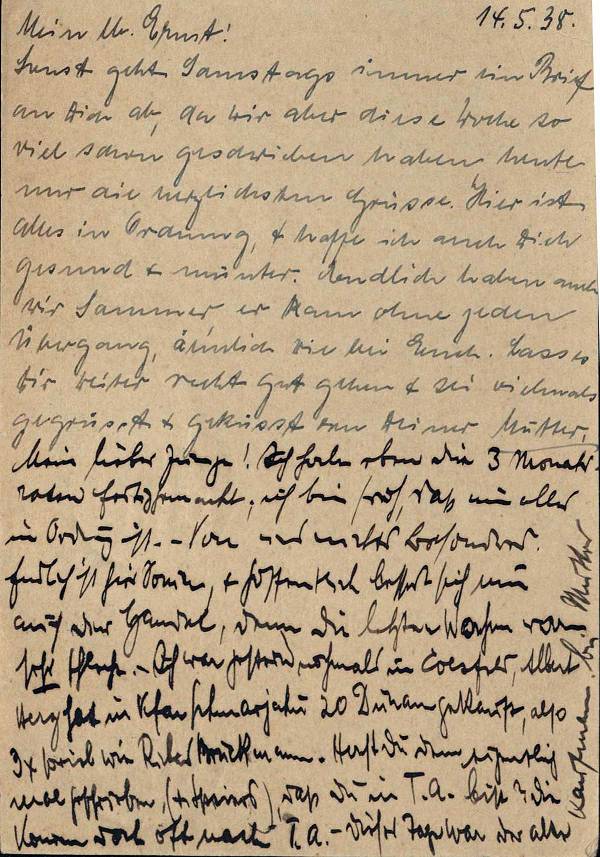 14.5.38.
Mein lb. Ernst!
Sonst geht Samstags immer ein Brief
an Dich ab, da wir aber diese Woche so
viel schon geschrieben haben heute
nur die herzlichsten Grüsse. Hier ist
alles in Ordnung, & hoffe ich auch Dich
gesund & munter. Endlich haben auch
wir Sommer er kam ohne jeden
Übergang, ähnlich wie bei Euch. Lass es
Dir weiter recht gut gehen & sei vielmals
gegrüsst & geküsst von Deiner Mutter.
Mein lieber Junge! Ich habe eben die 3 Monats
raten fertiggemacht, ich bin froh, daß nun alles
in Ordng ist. - Von uns nichts Besonderes.
Endlich ist hier Sonne, & hoffentlich bessert sich nun
auch der Handel, denn die letzten Wochen waren
sehr schlecht. - Ich war gestern nochmals in Coesfeld, Albert
Herz hat in 20 gekauft, also
3x soviel wie Brückmann. Hast Du denn eigentlich
mal geschrieben, (& ), daß Du in T.A. bist? die
kommen doch oft nach T.A. - dieser Tage war der alte
Kaufmann bei Mutter